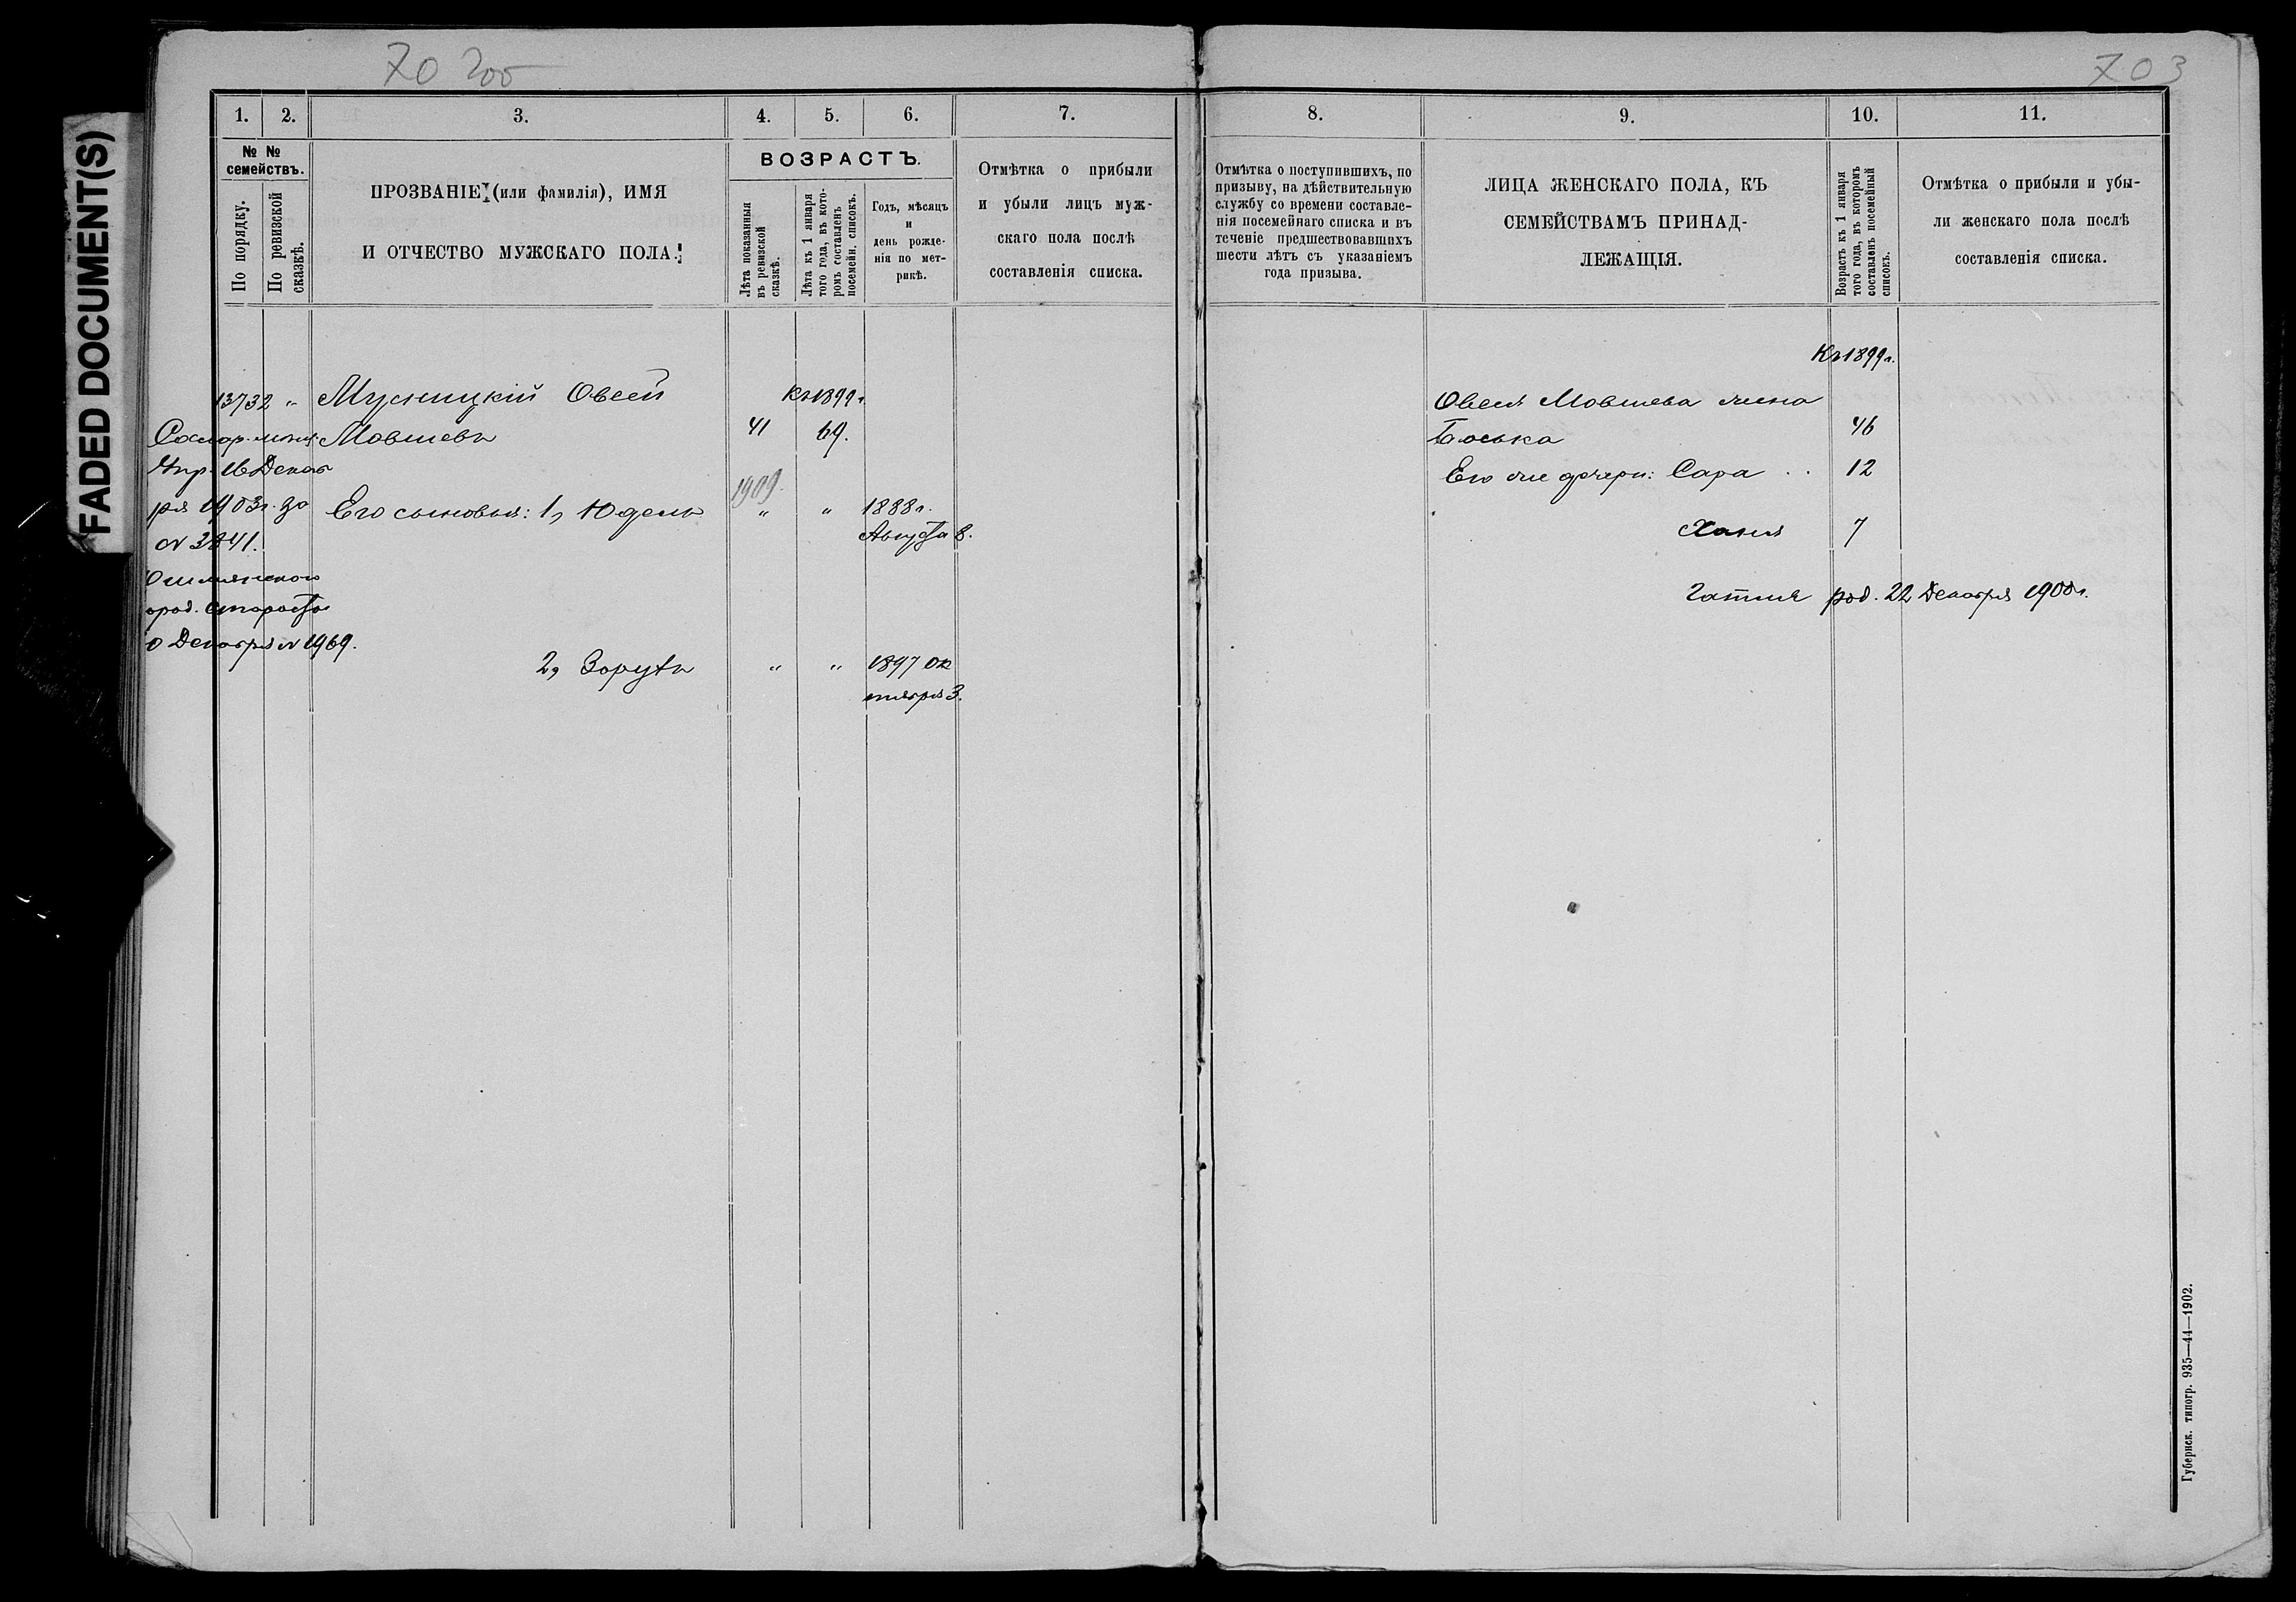 FADED DOCUMENT(S)
70 200
703
1.
2.
3.
4.
5.
6.
7.
№ №
семействъ.
По порядку.
По ревизской
сказкѣ.
ПРОЗВАНІЕ (или фамилія), ИМЯ
И ОТЧЕСТВО МУЖСКАГО ПОЛА.
ВОЗРАСТЪ.
Лѣта показанныя
въ ревизской
сказкѣ.
Лѣта къ 1 января
того года, въ кото-
ромъ составленъ
посемейн. списокъ.
Годъ, мѣсяцъ
и
день рожде-
нія по мет-
рикѣ.
Отмѣтка о прибыли
и убыли лицъ муж-
скаго пола послѣ
составленія списка.
13732 " Мусницкій Овсей
Къ 1899 г.
Мовшевъ
41 69.
1909
Его сыновья: 1, Юдель " " 1888 г.
Августа 8.
2, Зорухъ " " 1897 ок
тября 3.
Упр. 16 Декаб
ря 1903 г. за
№ 3841.
Ошмянскаго
ород. старосты
0 Декабря № 1969.
8.
9.
10.
11.
Отмѣтка о поступившихъ, по
призыву, на дѣйствительную
службу со времени составле-
нія посемейнаго списка и въ
теченіе предшествовавшихъ
шести лѣтъ съ указаніемъ
года призыва.
ЛИЦА ЖЕНСКАГО ПОЛА, КЪ
СЕМЕЙСТВАМЪ ПРИНАД-
ЛЕЖАЩІЯ.
Возрастъ къ 1 января
того года, въ которомъ
составленъ посемейный
списокъ.
Отмѣтка о прибыли и убы-
ли женскаго пола послѣ
составленія списка.
Къ 1899 г.
Овсея Мовшева жена
Баська 46
Его же дочери: Сара . . 12
Хана 7
род. 22 Декабря 1900 г.
Губернск. типогр. 935—44—1902.